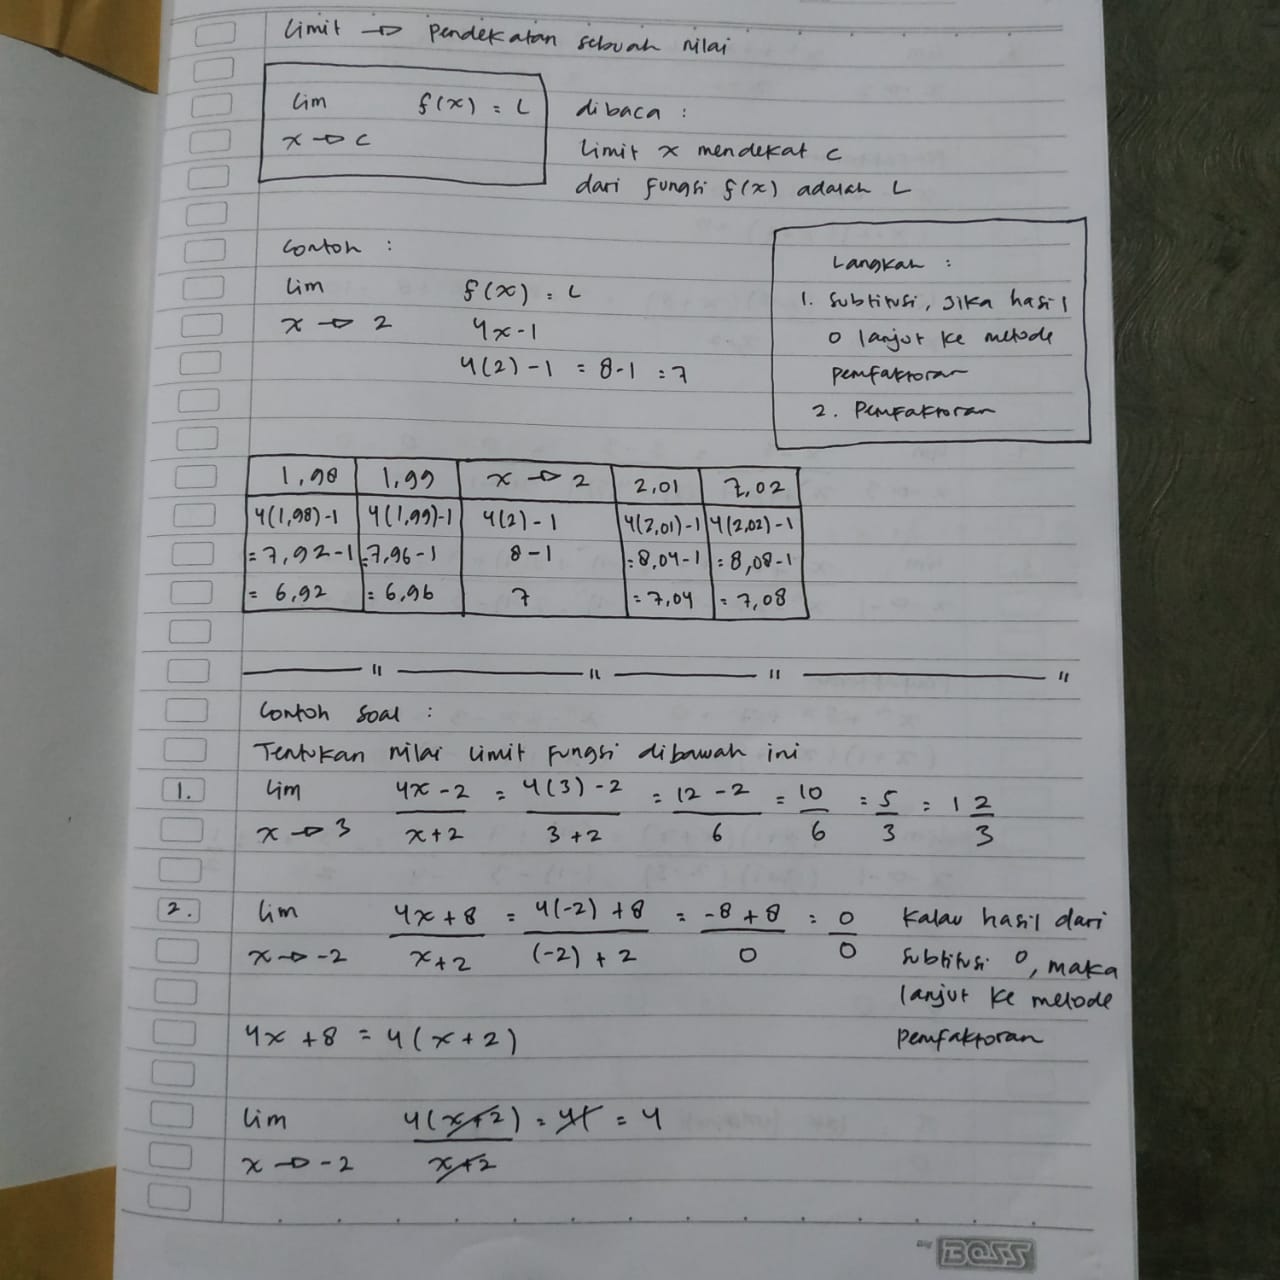 Limit → Pendekatan sebuah nilai
lim f(x) = L dibaca :
x → c limit x mendekat c
dari fungsi f(x) adalah L
Contoh :
lim f(x) = L
x → 2 4x-1
4(2)-1 = 8-1 = 7
Langkah :
1. Subtitusi, Jika hasil
0 lanjut ke metode
pemfaktoran
2. Pemfaktoran
1,98 1,99 x → 2 2,01 2,02
4(1,98)-1 4(1,99)-1 4(2)-1 4(2,01)-1 4(2,02)-1
= 7,92-1 = 7,96-1 8-1 = 8,04-1 = 8,08-1
= 6,92 = 6,96 7 = 7,04 = 7,08
Contoh Soal :
Tentukan nilai limit fungsi dibawah ini
1. lim 4x - 2 = 4(3) - 2 = 12 - 2 = 10 = 5 = 1 2
x → 3 x+2 3+2 6 6 3 3
2. lim 4x + 8 = 4(-2) + 8 = -8 + 8 = 0 Kalau hasil dari
x → -2 x+2 (-2) + 2 0 0 subtitusi 0, maka
lanjut ke metode
4x + 8 = 4(x+2) pemfaktoran
lim 4(x+2) = = 4
x → -2 x+2
BOSS